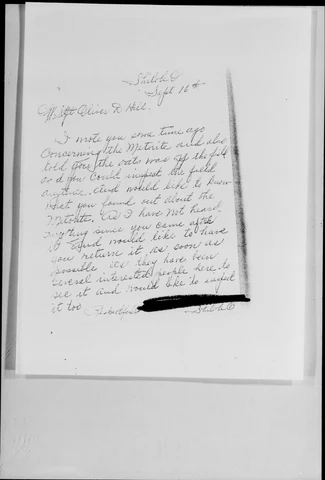 Shiloh O
Sept 16th
M/Sgt Oliver D Hill.
I wrote you some time ago
Concerning the Meterite and also
told you the oats was off the field
so d you could inspect the field
anytime. And would like to know
what you found out about the
Meteorite. As I have not heard
anything since you came after
it and would like to have
you return it as soon as
possible as they have been
several interested people here to
see it and would like to inspect
it too
Shiloh O